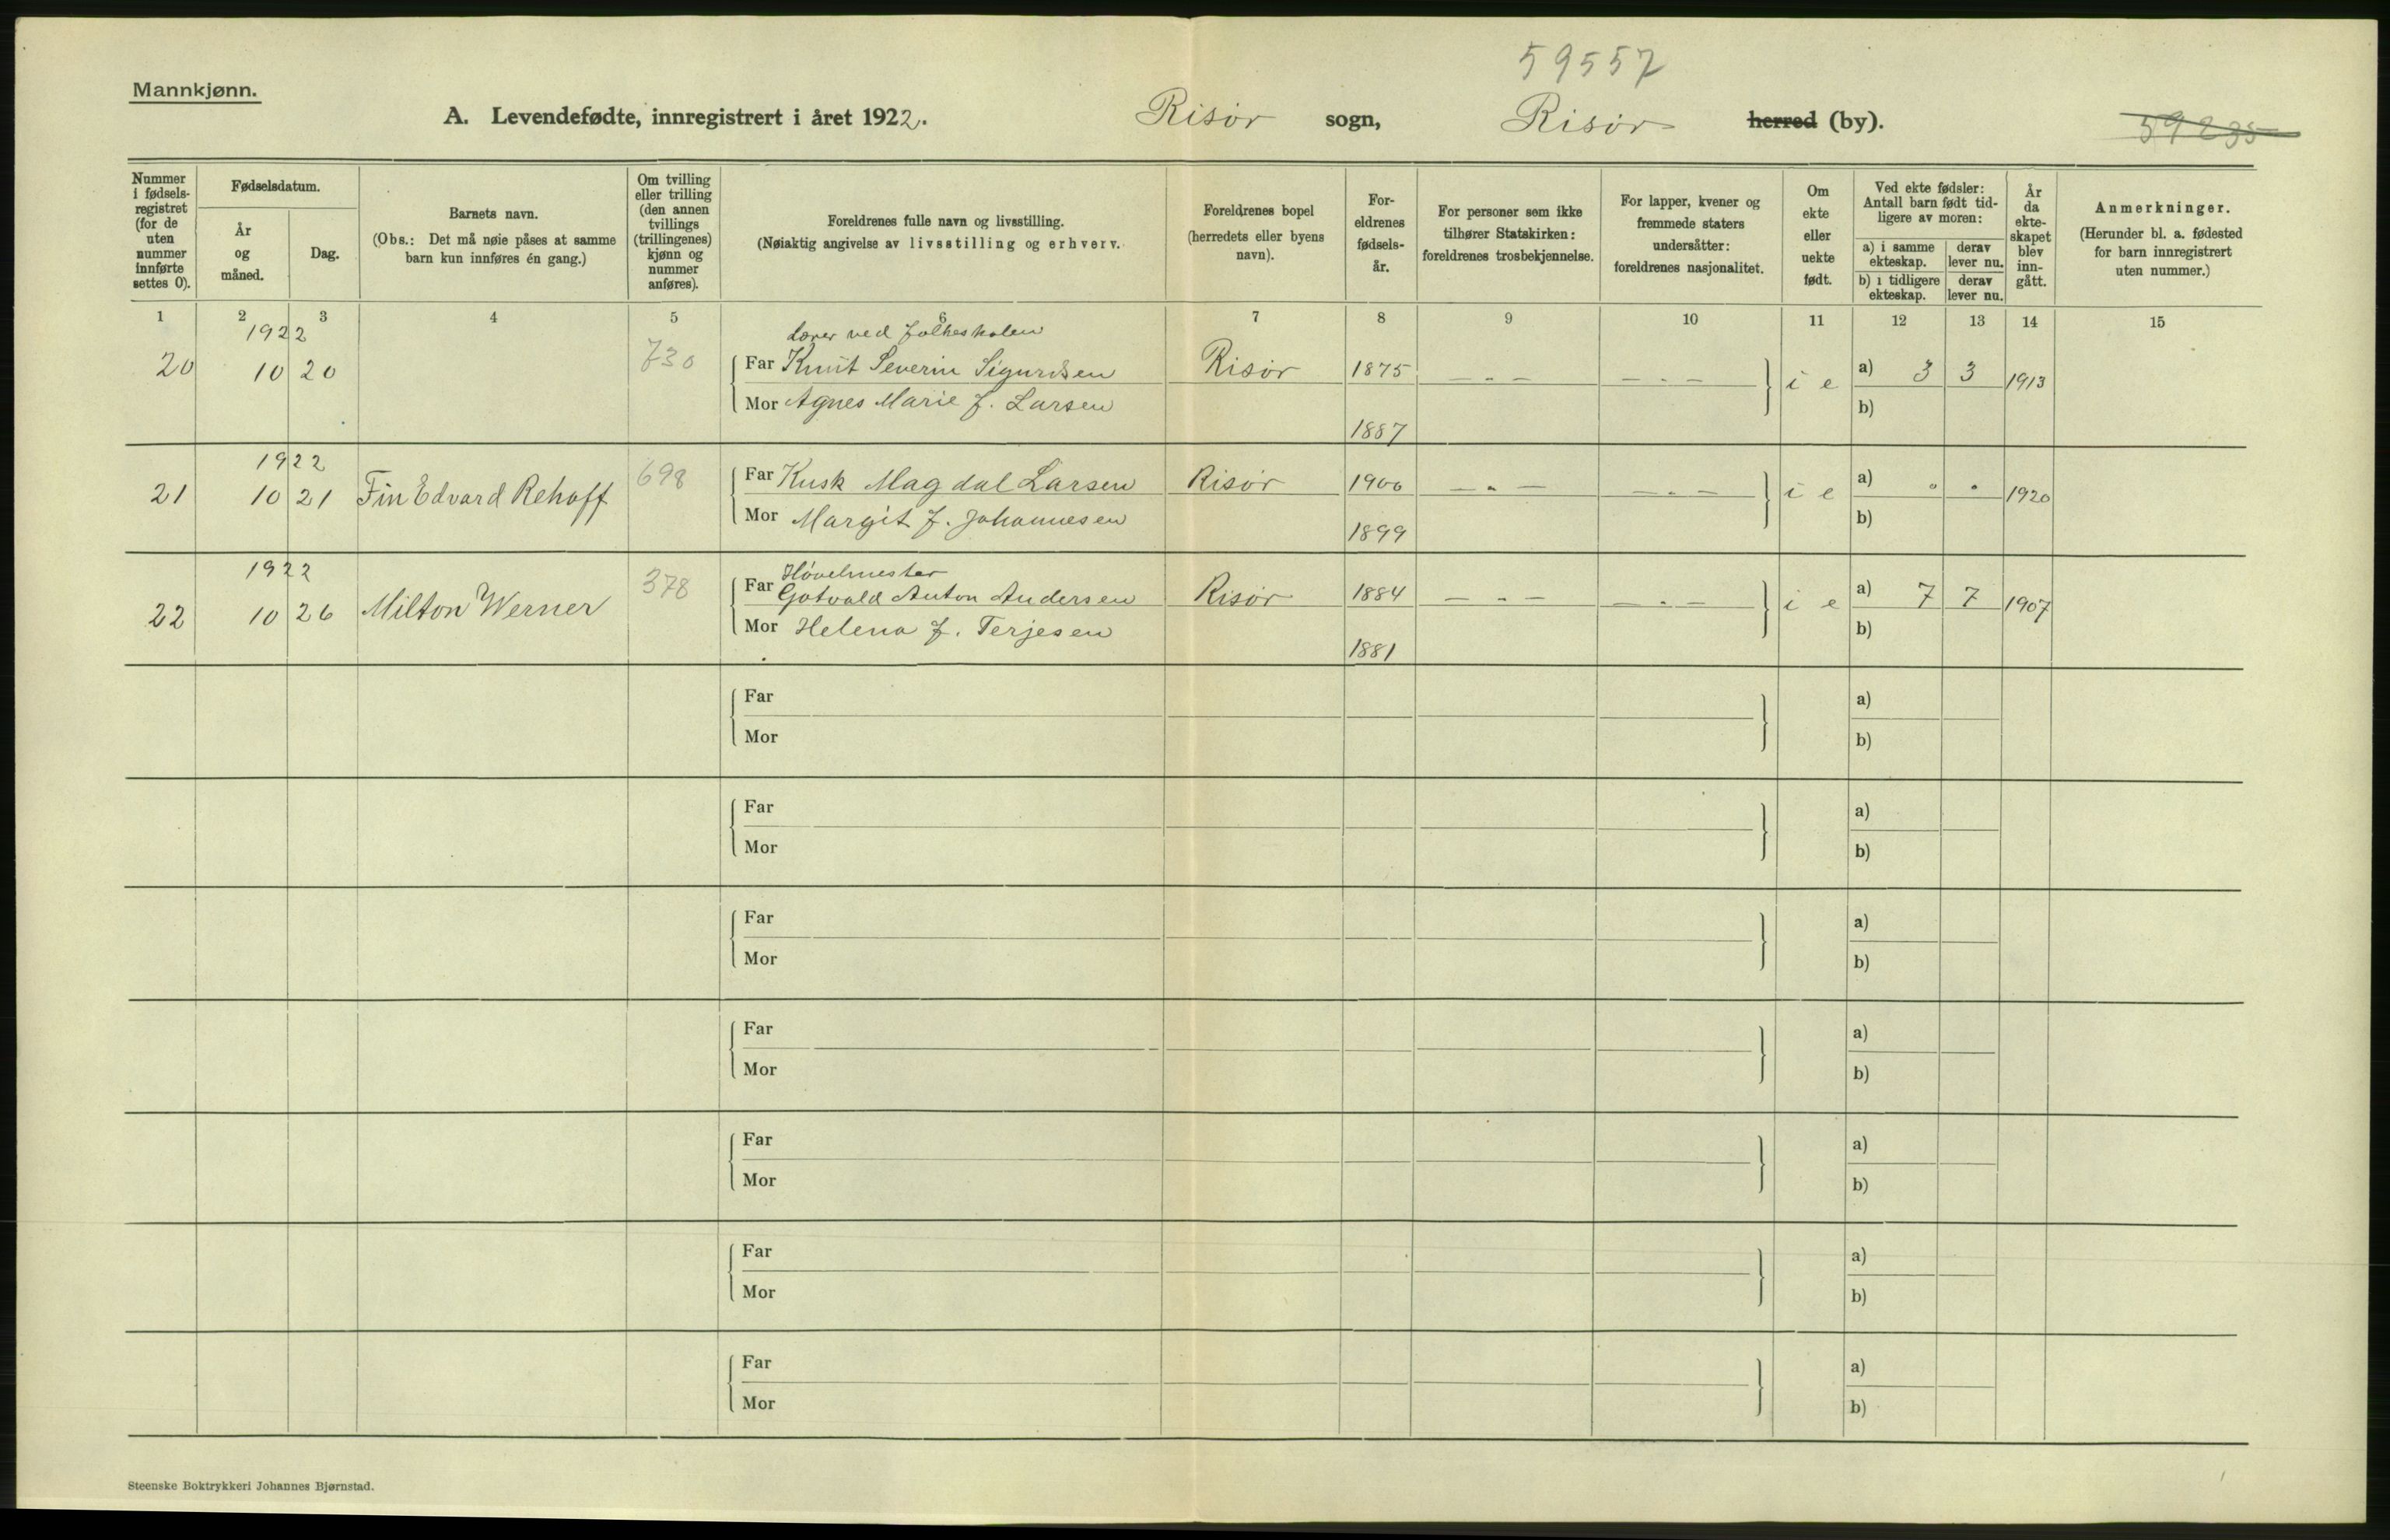 59557
Mannkjønn.
A. Levendefødte, innregistrert i året 1922. Risør sogn, Risør herred (by). 59235
Nummer i fødsels- registret (for de uten nummer innførte settes 0).
Fødselsdatum.
År og måned.
Dag.
Barnets navn.
(Obs.: Det må nøie påses at samme barn kun innføres én gang.)
Om tvilling eller trilling (den annen tvillings (trillingenes) kjønn og nummer anføres).
Foreldrenes fulle navn og livsstilling.
(Nøiaktig angivelse av livsstilling og erhverv.
Foreldrenes bopel (herredets eller byens navn).
For- eldrenes fødsels- år.
For personer som ikke tilhører Statskirken: foreldrenes trosbekjennelse.
For lapper, kvener og fremmede staters undersåtter: foreldrenes nasjonalitet.
Om ekte eller uekte født.
Ved ekte fødsler: Antall barn født tid- ligere av moren:
a) i samme ekteskap.
derav lever nu.
b) i tidligere ekteskap.
derav lever nu.
År da ekte- skapet blev inn- gått.
Anmerkninger.
(Herunder bl. a. fødested for barn innregistrert uten nummer.)
1 2 3 4 5 6 7 8 9 10 11 12 13 14 15
1922 Lærer ved Folkeskolen
20 10 20 730 Far Knut Severin Sigurdsen Risør 1875 — „ — — „ — i e a) 3 3 1913
Mor Agnes Marie f. Larsen 1887 b)
1922
21 10 21 Fin Edvard Rehoff 698 Far Kusk Magdal Larsen Risør 1900 — „ — — „ — i e a) " " 1920
Mor Margit f. Johannesen 1899 b)
1922 Høvelmester
22 10 26 Milton Werner 378 Far Gotvald Anton Andersen Risør 1884 — „ — — „ — i e a) 7 7 1907
Mor Helena f. Terjesen 1881 b)
Far a)
Mor b)
Far a)
Mor b)
Far a)
Mor b)
Far a)
Mor b)
Far a)
Mor b)
Far a)
Mor b)
Far a)
Mor b)
Steenske Boktrykkeri Johannes Bjørnstad.